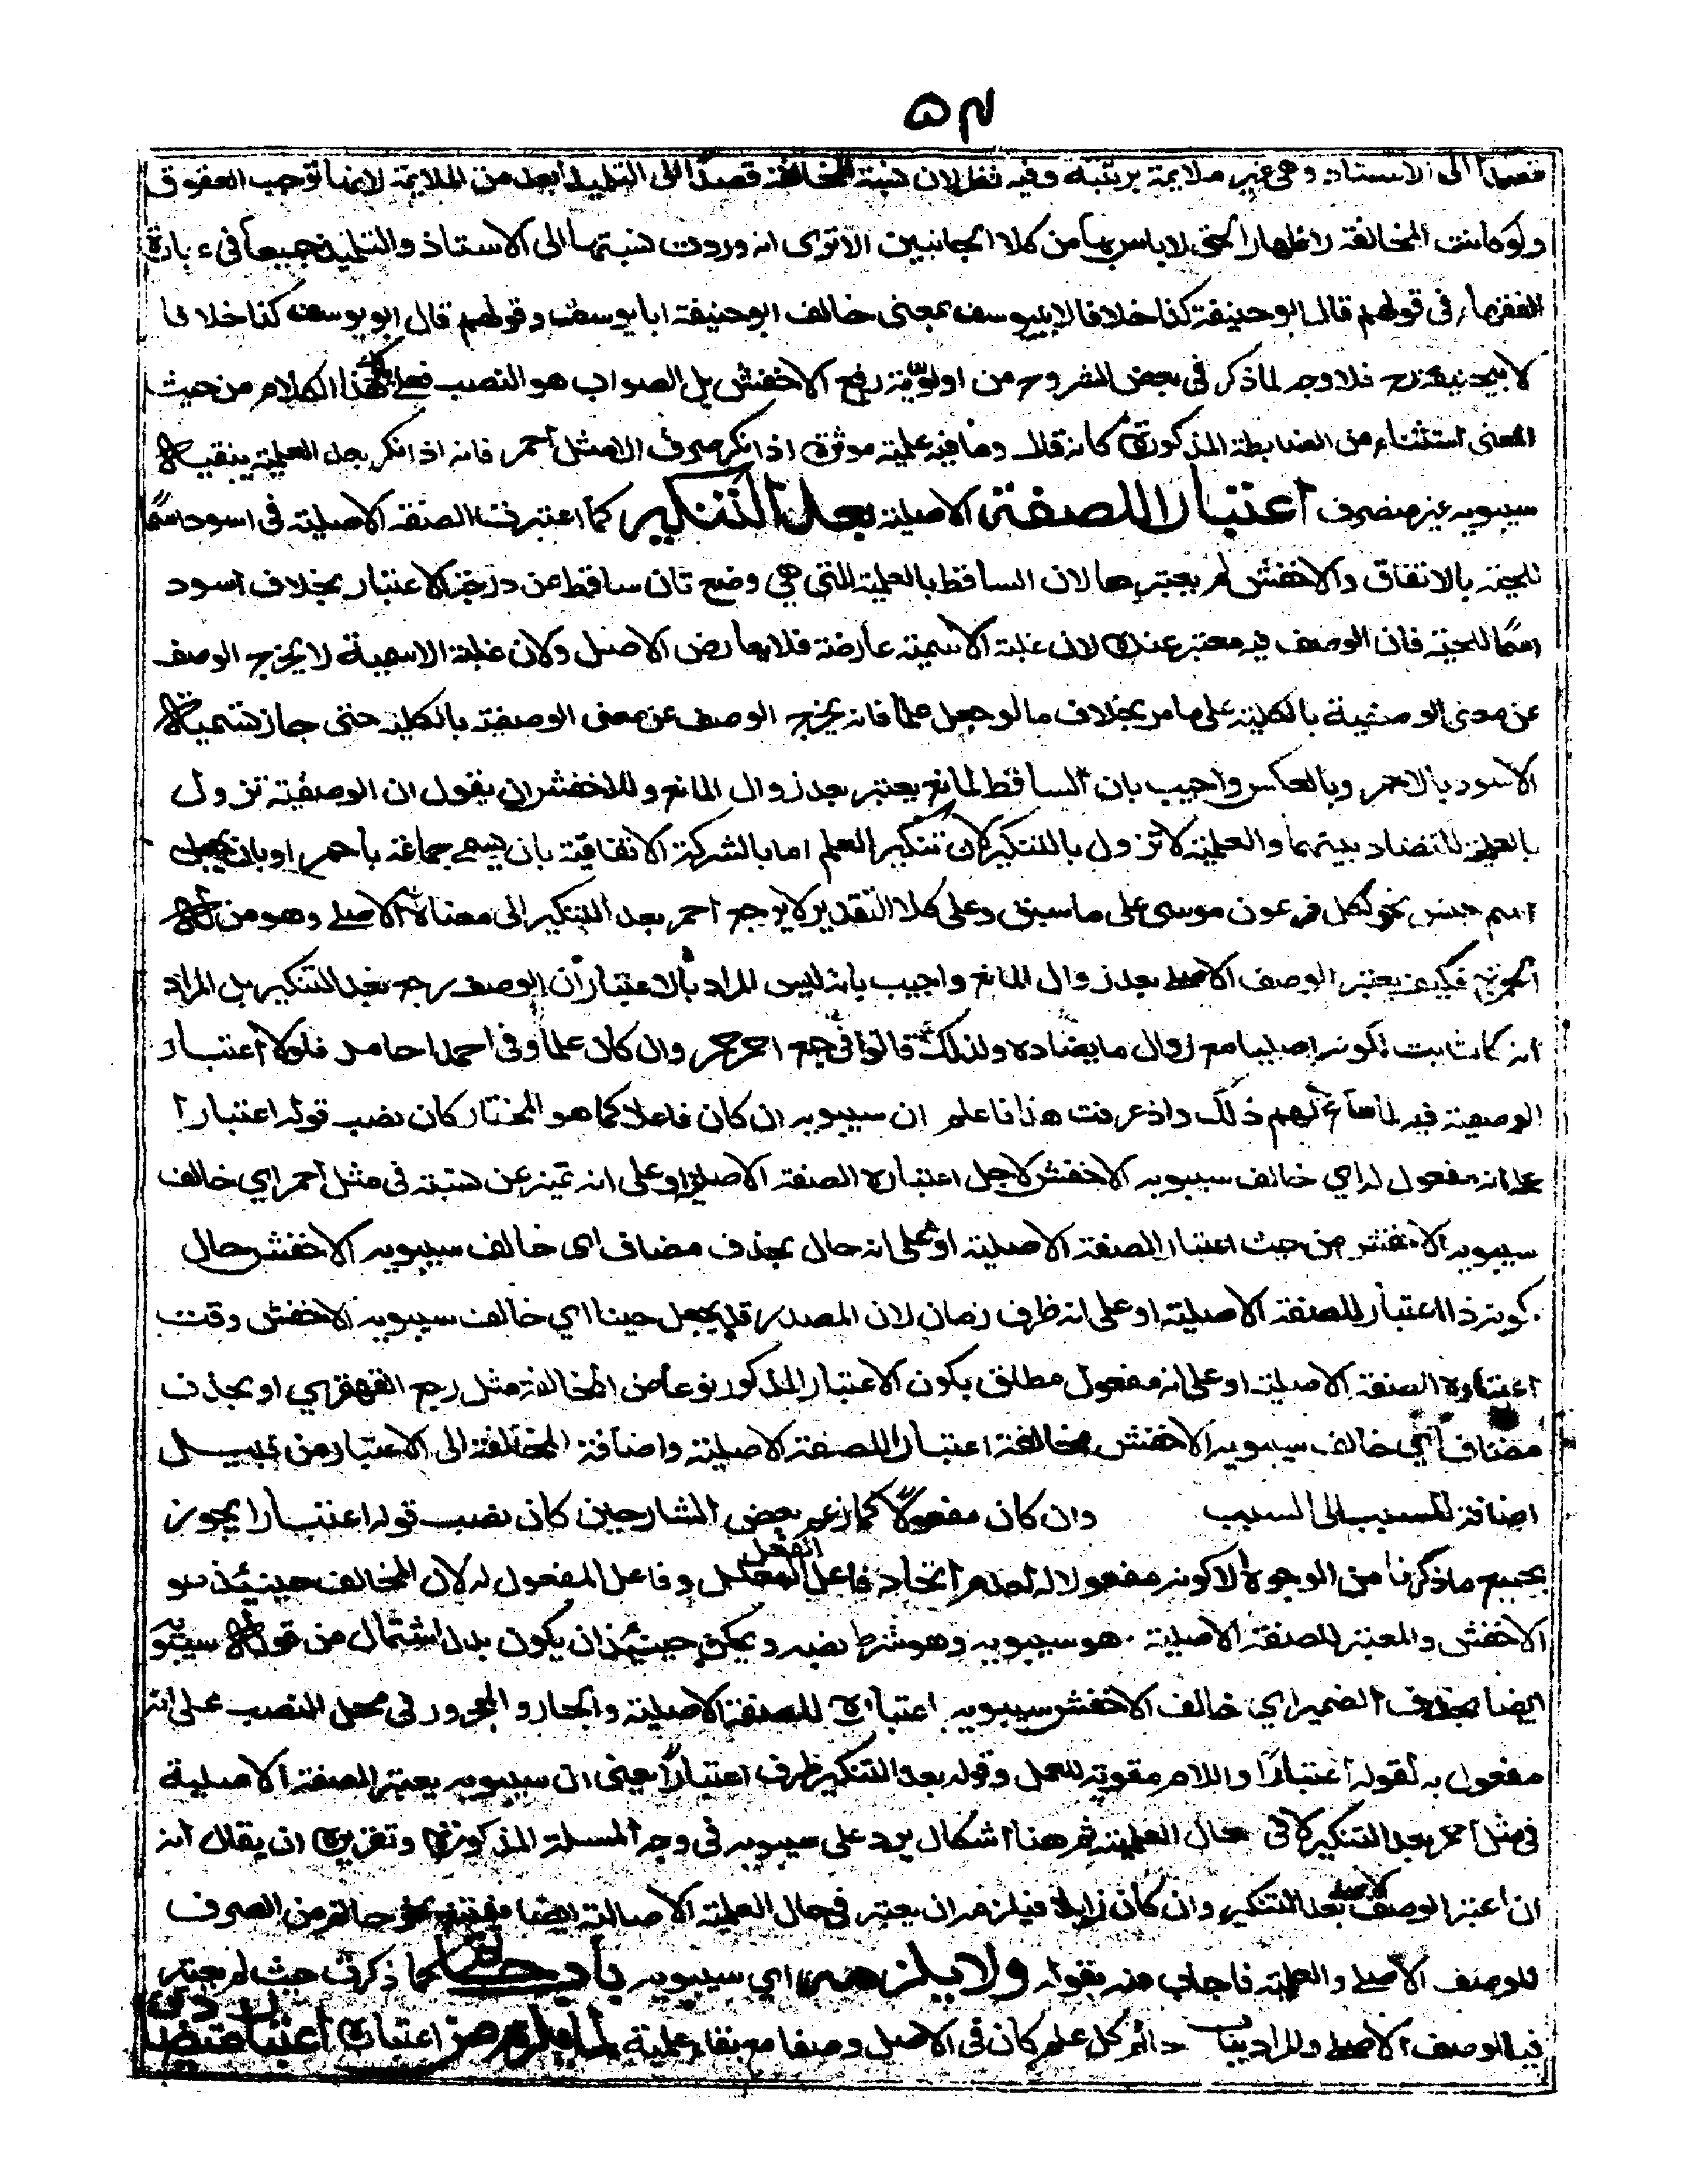 ٥٣
قصدا الى الاستاد وهى غير ملايمة برتبة وفيه نظر لان نسبة المخالفة قصدا الى التلميذ ابعد من الملايمة لانها توجب العقوق
ولو كانت المخالفة لاظهار الحق لا باس بها من كلا الجانبين الا ترى انه وردت نسبتها الى الاستاذ والتلميذ جميعا فى عبارة
الفقهاء فى قولهم قال ابو حنيفة كذا خلافا لابيوسف بمعنى خالف ابو حنيفة ابا يوسف وقولهم قال ابو يوسف كذا خلافا
لابيحنيفة رح فلا وجه لما ذكر فى بعض الشروح من اولوية رفع الاخفش بل الصواب هو النصب فعلى هذا الكلام من حيث
المعنى استثناء من الضابطة المذكورة كانه قال وما فيه علمية موثرة اذا نكر صرف الا مثل احمر فانه اذا نكر بعد العلمية يبقيه
سيبويه غير منصرف اعتبارا للصفة الاصلية بعد التنكير كما اعتبرت الصفة الاصلية فى اسود اسما
للحية بالاتفاق والاخفش لم يعتبرها لان الساقط بالعلمية التى هي وضع ثان ساقط عن درجة الاعتبار بخلاف اسود
اسما للحية فان الوصف فيه معتبر عنده لان غلبة الاسمية عارضة فلا يعارض الاصل ولان غلبة الاسمية لا يخرج الوصف
عن معنى الوصفية بالكلية على ما مر بخلاف ما لو جعل علما فانه يخرج الوصف عن معنى الوصفية بالكلية حتى جاز تسمية
الاسود بالاحمر وبالعكس واجيب بان الساقط لمانع يعتبر بعد زوال المانع وللاخفش ان يقول ان الوصفية تزول
بالعلمية للتضاد بينهما والعلمية لا تزول بالتنكير لان تنكير العلم اما بالشركة الاتفاقية بان يسمى جماعة باحمر او بان يجعل
اسم جنس نحو لكل فرعون موسى على ما سبق وعلى كلا التقدير لا يرجع احمر بعد التنكير الى معناه الاصلى وهو من له
الحمرة فكيف يعتبر الوصف الاصلى بعد زوال المانع واجيب بانه ليس المراد بالاعتبار ان الوصف يرجع بعد التنكير بل المراد
انه كالثابت لكونه اصليا مع زوال ما يضاده ولذلك قالوا فى جمع احمر حمر وان كان علما وفى احمد احامد فلولا اعتبار
الوصفية فيه لما ساغ لهم ذلك واذ عرفت هذا فاعلم ان سيبويه ان كان فاعلا كما هو المختار كان نصب قوله اعتبارا
على انه مفعول له اي خالف سيبويه الاخفش لاجل اعتباره الصفة الاصلية او على انه تميز عن نسبة فى مثل احمر اي خالف
سيبويه الاخفش من حيث اعتبار الصفة الاصلية او على انه حال بحذف مضاف اى خالف سيبويه الاخفش حال
كونه ذا اعتبار للصفة الاصلية او على انه ظرف زمان لان المصدر قد يجعل حينا اي خالف سيبويه الاخفش وقت
اعتباره الصفة الاصلية او على انه مفعول مطلق بكون الاعتبار المذكور نوعا من المخالفة مثل رجع القهقري او بحذف
مضاف اي خالف سيبويه الاخفش مخالفة اعتبار للصفة الاصلية واضافة المخالفة الى الاعتبار من قبيل
اضافة المسبب الى السبب وان كان مفعولا كما زعم بعض الشارحين كان نصب قوله اعتبارا يجوز
بجميع ما ذكرنا من الوجوه الا كونه مفعولا له لعدم اتحاد فاعل الفعل المعلل وفاعل المفعول له لان المخالف حينئذ هو
الاخفش والمعتبر للصفة الاصلية هو سيبويه وهو شرط نصبه ويمكن حينئذ ان يكون بدل اشتمال من قوله سيبويه
ايضا بحذف الضمير اي خالف الاخفش سيبويه اعتباره للصفة الاصلية والجار والمجرور فى محل النصب على انه
مفعول به لقوله اعتبارا واللام مقوية للعمل وقوله بعد التنكير ظرف اعتبارا يعنى ان سيبويه يعتبر الصفة الاصلية
فى مثل احمر بعد التنكير لا فى حال العلمية ثم هنا اشكال يرد على سيبويه فى وجه المسئلة المذكورة وتقريره ان يقال انه
ان اعتبر الوصف الاصلى بعد التنكير وان كان زايلا فيلزمه ان يعتبر فى حال العلمية الاصالته ايضا فيمتنع نحو حاتم من الصرف
للوصف الاصلى والعلمية فاجاب عنه بقوله ولا يلزمه اي سيبويه باب حاتم كما ذكرت حيث لم يعتبر
فيه الوصف الاصلى والمراد بباب حاتم كل علم كان فى الاصل وصفا مع بقاء علميته لما يلزم من اعتباره اعتبار متضادين